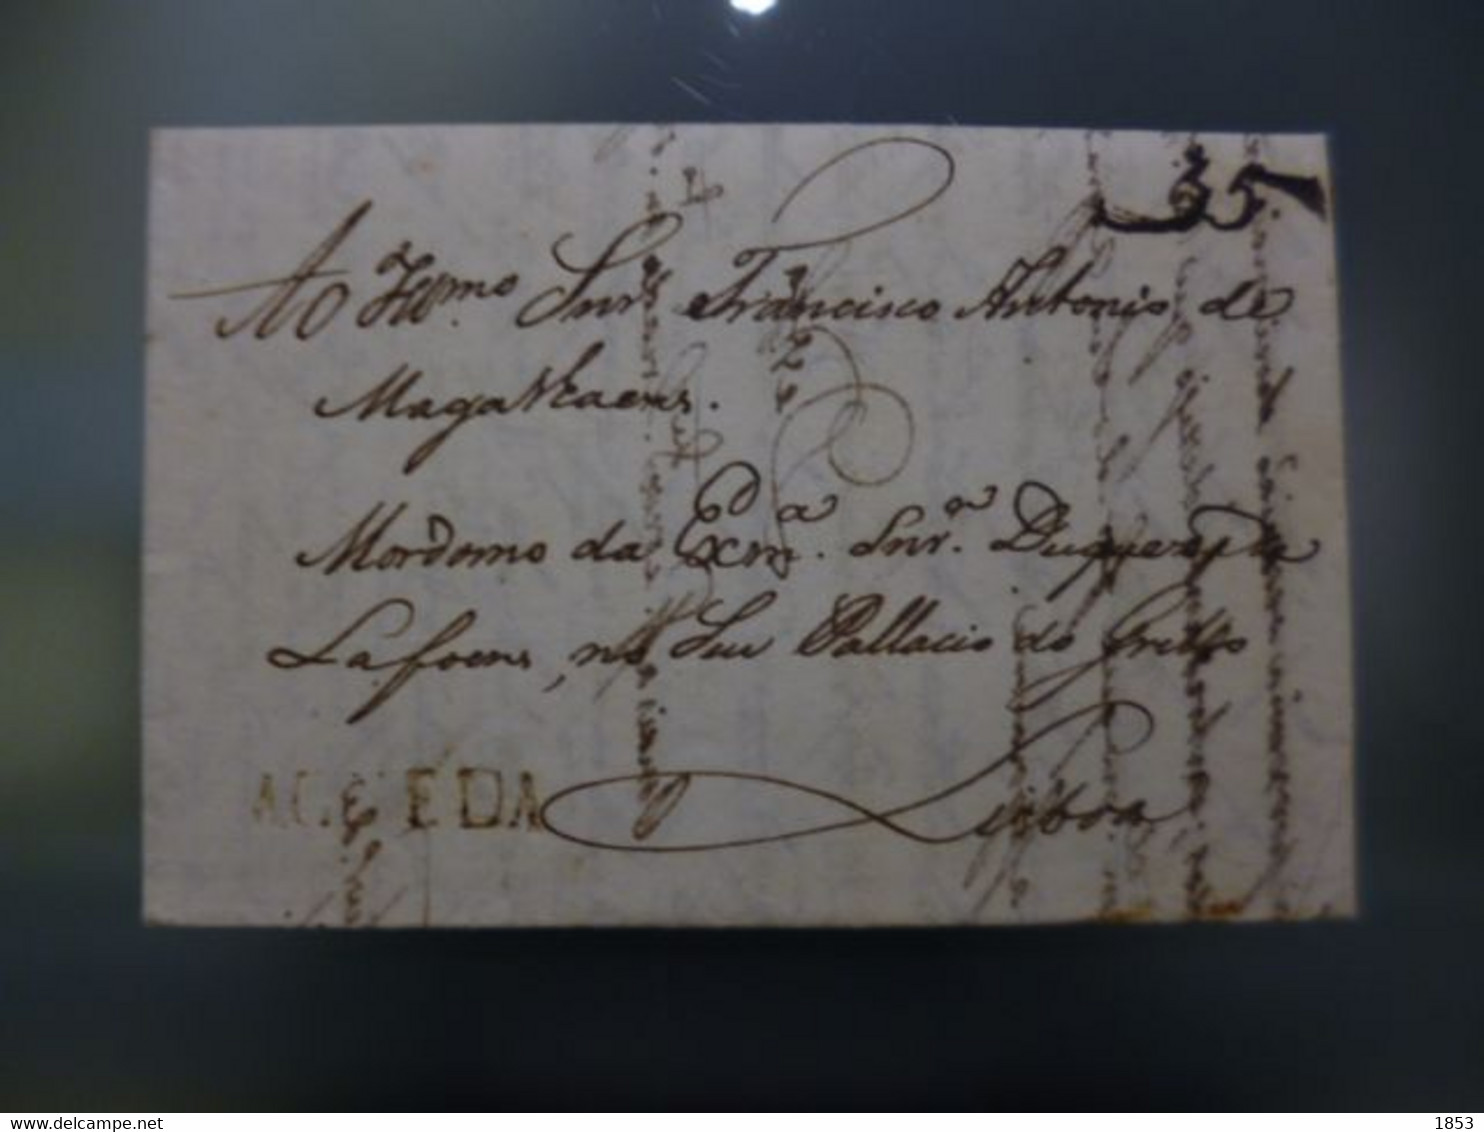 35
Ao Illmo. Snr. Francisco Antonio de
Magalhaens.
Mordomo da Exma. Snra. Duqueza de
Lafoens, no Seu Pallacio do Grillo
AGUEDA
Lisboa
delcampe.net
1853